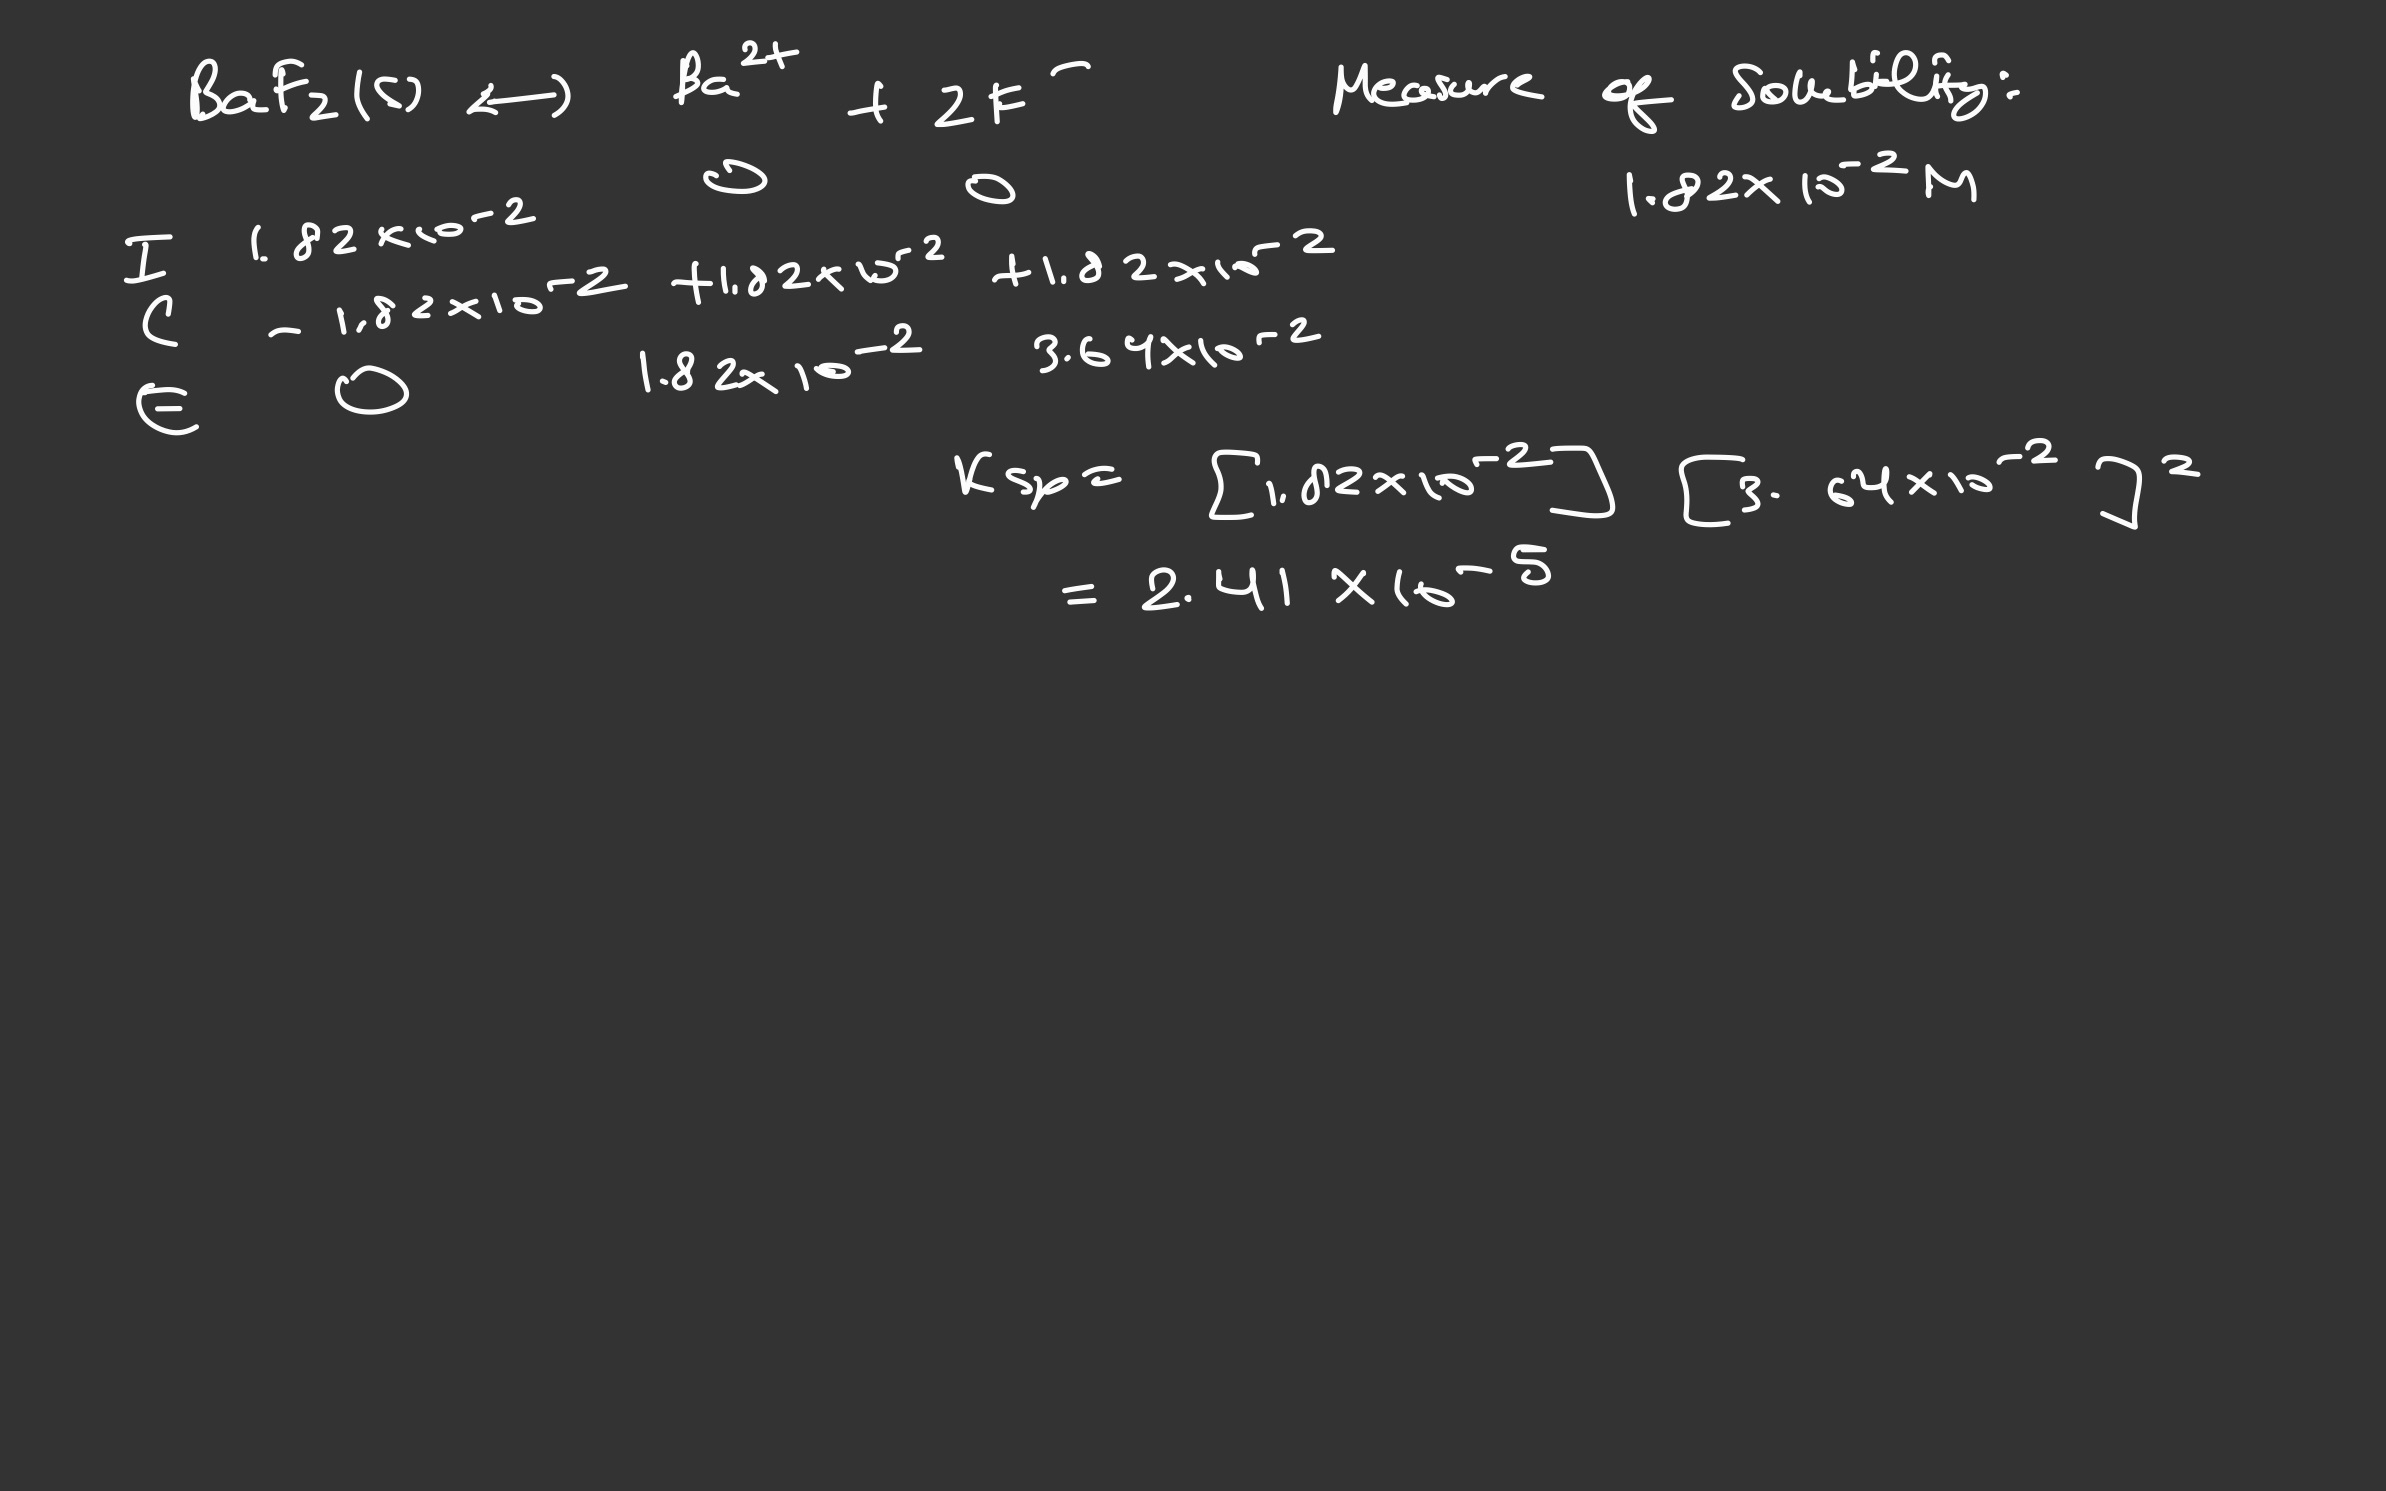 BaF₂(s) ↔ Ba²⁺ + 2F⁻
Measure of Solubility:
1.82×10⁻² M
I 1.82×10⁻² 0 0
C - 1.82×10⁻² +1.82×10⁻² +1.82×10⁻²
E 0 1.82×10⁻² 3.64×10⁻²
Ksp = [1.82×10⁻²] [3.64×10⁻²]²
= 2.41 ×10⁻⁵